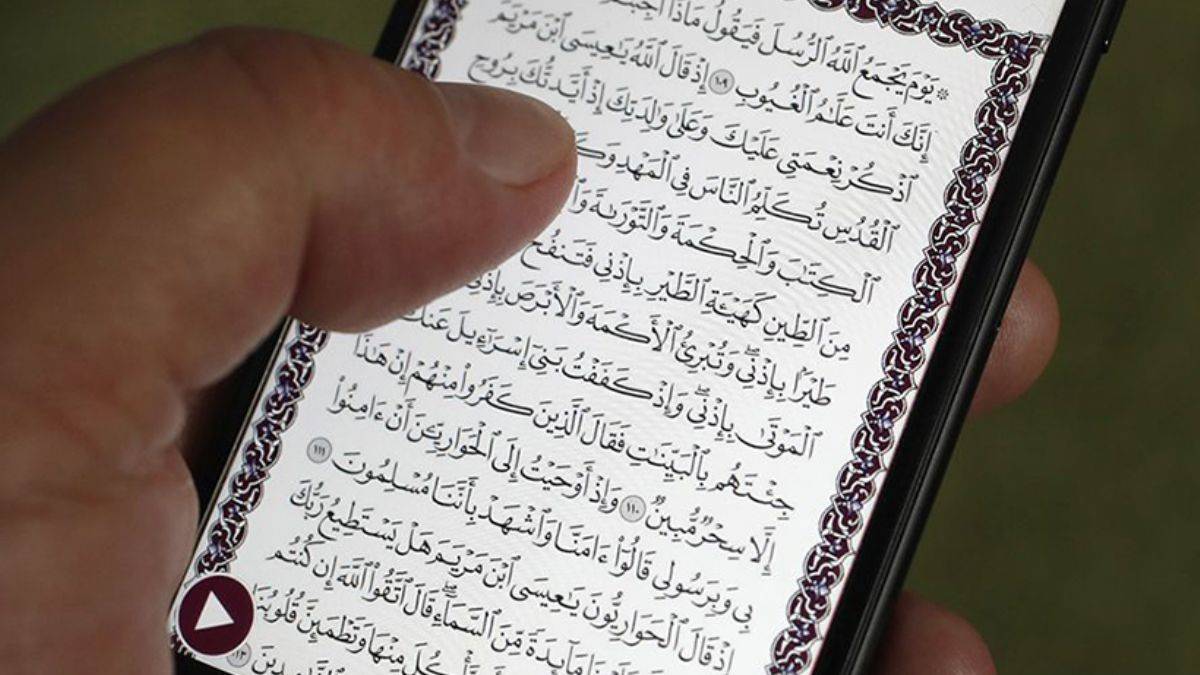 ۞ يَوْمَ يَجْمَعُ ٱللَّهُ ٱلرُّسُلَ فَيَقُولُ مَاذَآ أُجِبْتُمْ
إِنَّكَ أَنتَ عَلَّٰمُ ٱلْغُيُوبِ ١٠٩ إِذْ قَالَ ٱللَّهُ يَٰعِيسَى ٱبْنَ مَرْيَمَ
ٱذْكُرْ نِعْمَتِى عَلَيْكَ وَعَلَىٰ وَٰلِدَتِكَ إِذْ أَيَّدتُّكَ بِرُوحِ
ٱلْقُدُسِ تُكَلِّمُ ٱلنَّاسَ فِى ٱلْمَهْدِ
ٱلْكِتَٰبَ وَٱلْحِكْمَةَ وَٱلتَّوْرَىٰةَ
مِنَ ٱلطِّينِ كَهَيْـَٔةِ ٱلطَّيْرِ بِإِذْنِى فَتَنفُخُ
طَيْرًۢا بِإِذْنِى وَتُبْرِئُ ٱلْأَكْمَهَ وَٱلْأَبْرَصَ بِإِذْنِى
ٱلْمَوْتَىٰ بِإِذْنِى وَإِذْ كَفَفْتُ بَنِىٓ إِسْرَٰٓءِيلَ عَنكَ
جِئْتَهُم بِٱلْبَيِّنَٰتِ فَقَالَ ٱلَّذِينَ كَفَرُوا۟ مِنْهُمْ إِنْ هَٰذَآ
إِلَّا سِحْرٌ مُّبِينٌ ١١٠ وَإِذْ أَوْحَيْتُ إِلَى ٱلْحَوَارِيِّـۧنَ أَنْ ءَامِنُوا۟
بِى وَبِرَسُولِى قَالُوٓا۟ ءَامَنَّا وَٱشْهَدْ بِأَنَّنَا مُسْلِمُونَ ١١١
إِذْ قَالَ ٱلْحَوَارِيُّونَ يَٰعِيسَى ٱبْنَ مَرْيَمَ هَلْ يَسْتَطِيعُ رَبُّكَ
مَآئِدَةً مِّنَ ٱلسَّمَآءِ قَالَ ٱتَّقُوا۟ ٱللَّهَ إِن كُنتُم
نَّأْكُلَ مِنْهَا وَتَطْمَئِنَّ قُلُوبُنَا